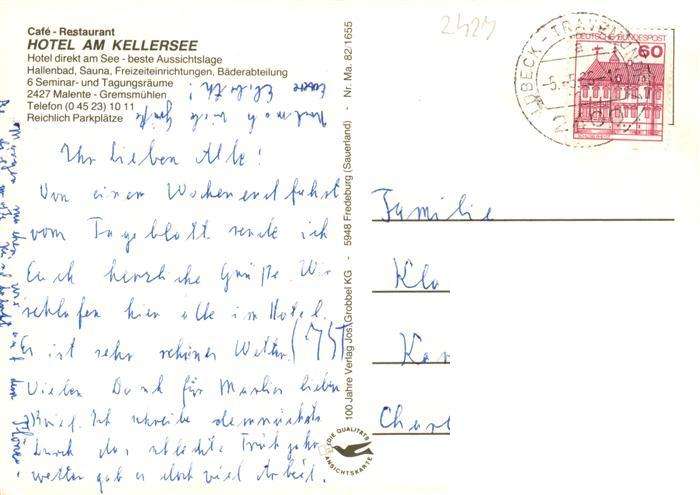 Café - Restaurant
HOTEL AM KELLERSEE
Hotel direkt am See - beste Aussichtslage
Hallenbad, Sauna, Freizeiteinrichtungen, Bäderabteilung
6 Seminar- und Tagungsräume
2427 Malente - Gremsmühlen
Telefon (0 45 23) 10 11
Reichlich Parkplätze
Ihr Lieben Alle!
Von einem Wochenendfahrt
vom Tageblatt sende ich
Euch herzliche Grüße. Wir
schlafen hier alle im Hotel.
Es ist sehr schönes Wetter. (75)
Vielen Dank für Marlies lieben
Brief. Ich schreibe demnächst.
Durch das schlechte Frühjahrs
wetter gab es doch viel Arbeit.
und noch viele Grüße
Eure Elsbeth!
Nr. Ma. 82/1655
5948 Fredeburg (Sauerland)
100 Jahre Verlag Jos. Grobbel KG
DIE QUALITÄTS
ANSICHTSKARTE
2424
LÜBECK-TRAVEMÜNDE
DEUTSCHE BUNDESPOST
60
Familie
Klo
Kar
Charl